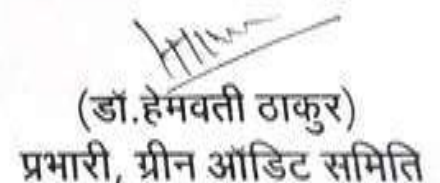 (डॉ.हेमवती ठाकुर)
प्रभारी, ग्रीन ऑडिट समिति